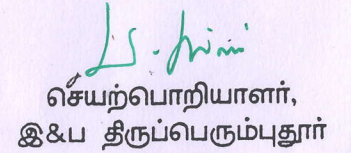 செயற்பொறியாளர்,
இ&ப திருப்பெரும்புதூர்